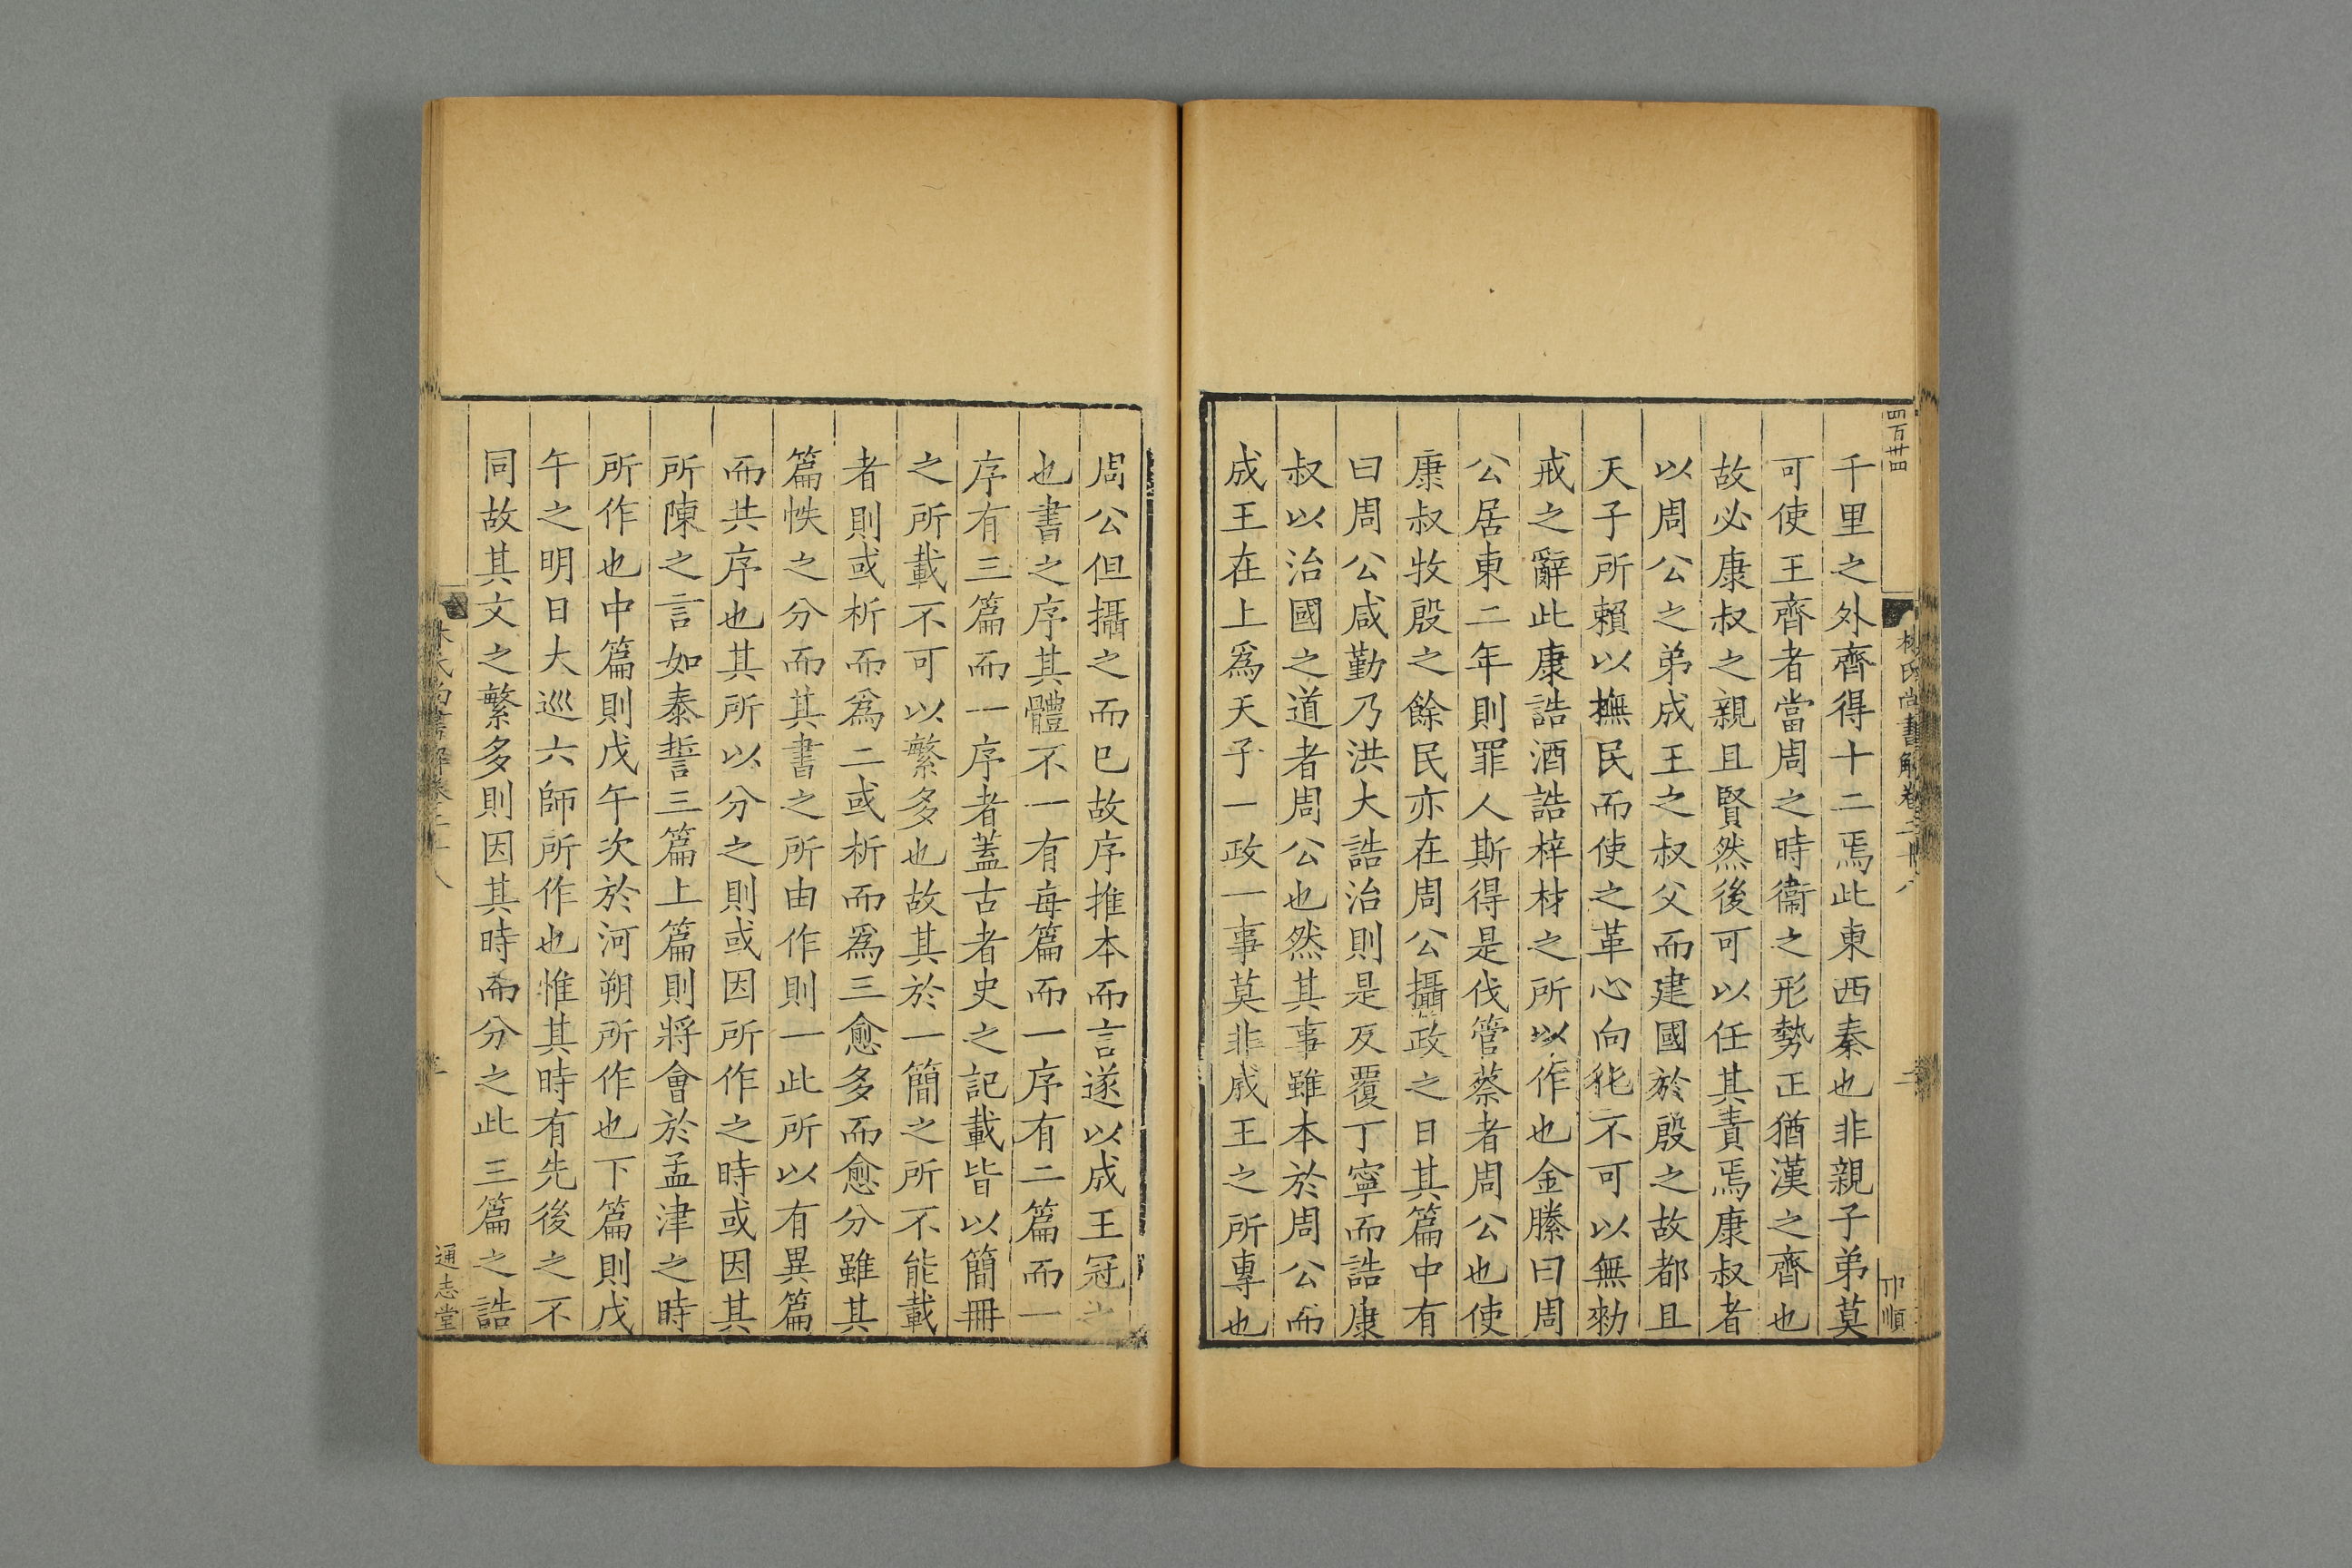 四百廿四
林氏尚書解卷二十八
二
卬順
千里之外齊得十二焉此東西秦也非親子弟莫
可使王齊者當周之時衞之形勢正猶漢之齊也
故必康叔之親且賢然後可以任其責焉康叔者
以周公之弟成王之叔父而建國於殷之故都且
天子所賴以撫民而使之革心向化不可以無勑
戒之辭此康誥酒誥梓材之所以作也金縢曰周
公居東二年則罪人斯得是伐管蔡者周公也使
康叔牧殷之餘民亦在周公攝政之日其篇中有
曰周公咸勤乃洪大誥治則是反覆丁寧而誥康
叔以治國之道者周公也然其事雖本於周公而
成王在上爲天子一政一事莫非成王之所專也
周公但攝之而已故序推本而言遂以成王冠之
也書之序其體不一有每篇而一序有二篇而一
序有三篇而一序者蓋古者史之記載皆以簡冊
之所載不可以繁多也故其於一簡之所不能載
者則或析而爲二或析而爲三愈多而愈分雖其
篇帙之分而其書之所由作則一此所以有異篇
而共序也其所以分之則或因所作之時或因其
所陳之言如泰誓三篇上篇則將會於孟津之時
所作也中篇則戊午次於河朔所作也下篇則戊
午之明日大巡六師所作也惟其時有先後之不
同故其文之繁多則因其時而分之此三篇之誥
林氏尚書解卷二十八
通志堂